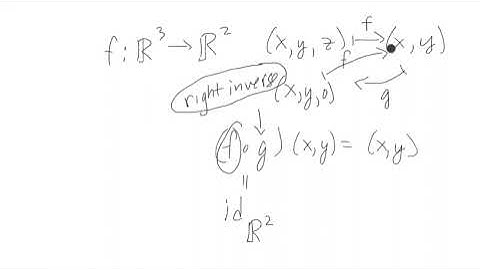 f : ℝ³ → ℝ² (x, y, z) f→ (x, y)
right inverse (x, y, 0) f g
(f ∘ g) (x, y) = (x, y)
||
id ℝ²